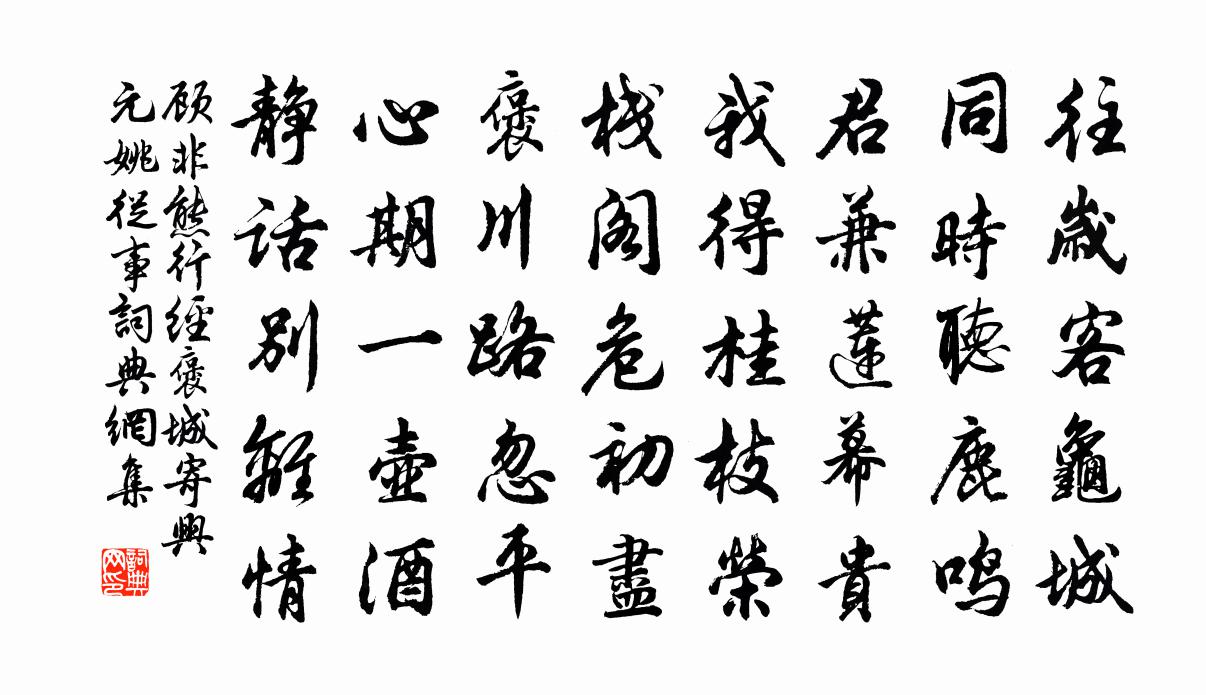 往歲客龜城
同時聽鹿鳴
君兼蓮幕貴
我得桂枝榮
棧閣危初盡
褒川路忽平
心期一壺酒
靜話別離情
顧非熊行經褒城寄興
元姚從事詞典網集
詞典网印